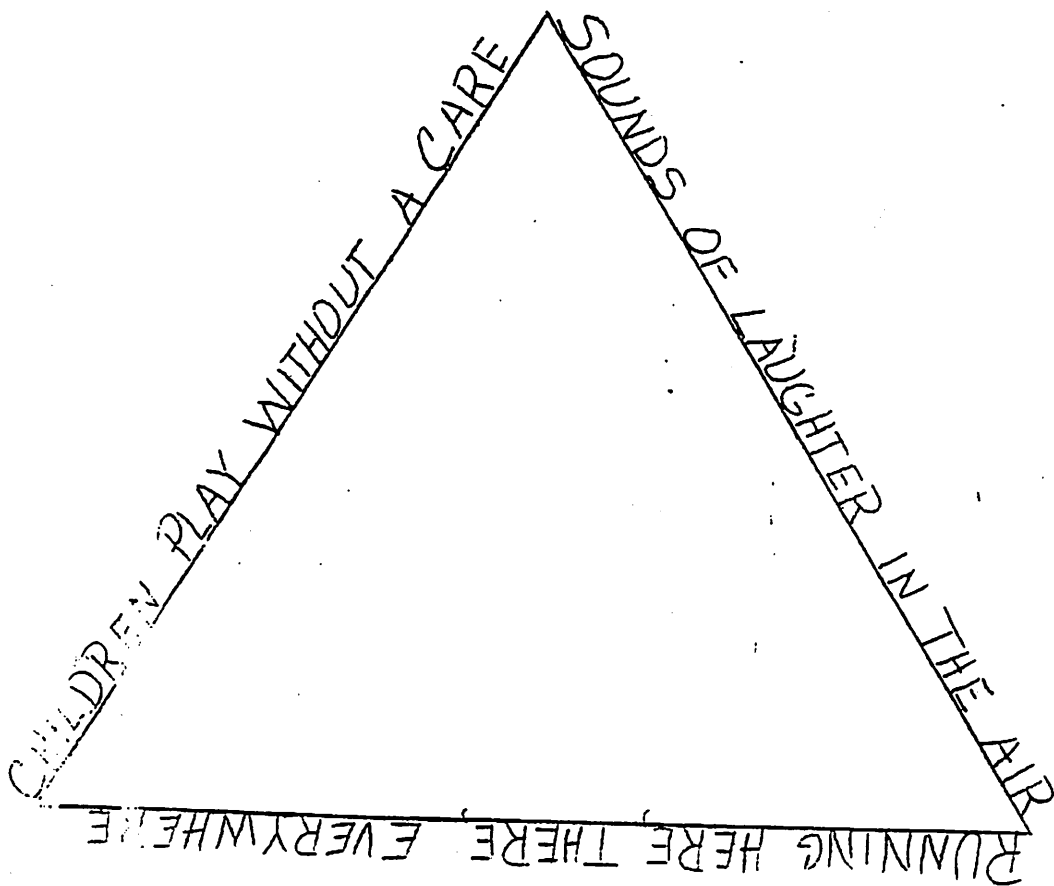 CHILDREN PLAY WITHOUT A CARE
SOUNDS OF LAUGHTER IN THE AIR
RUNNING HERE, THERE, EVERYWHERE